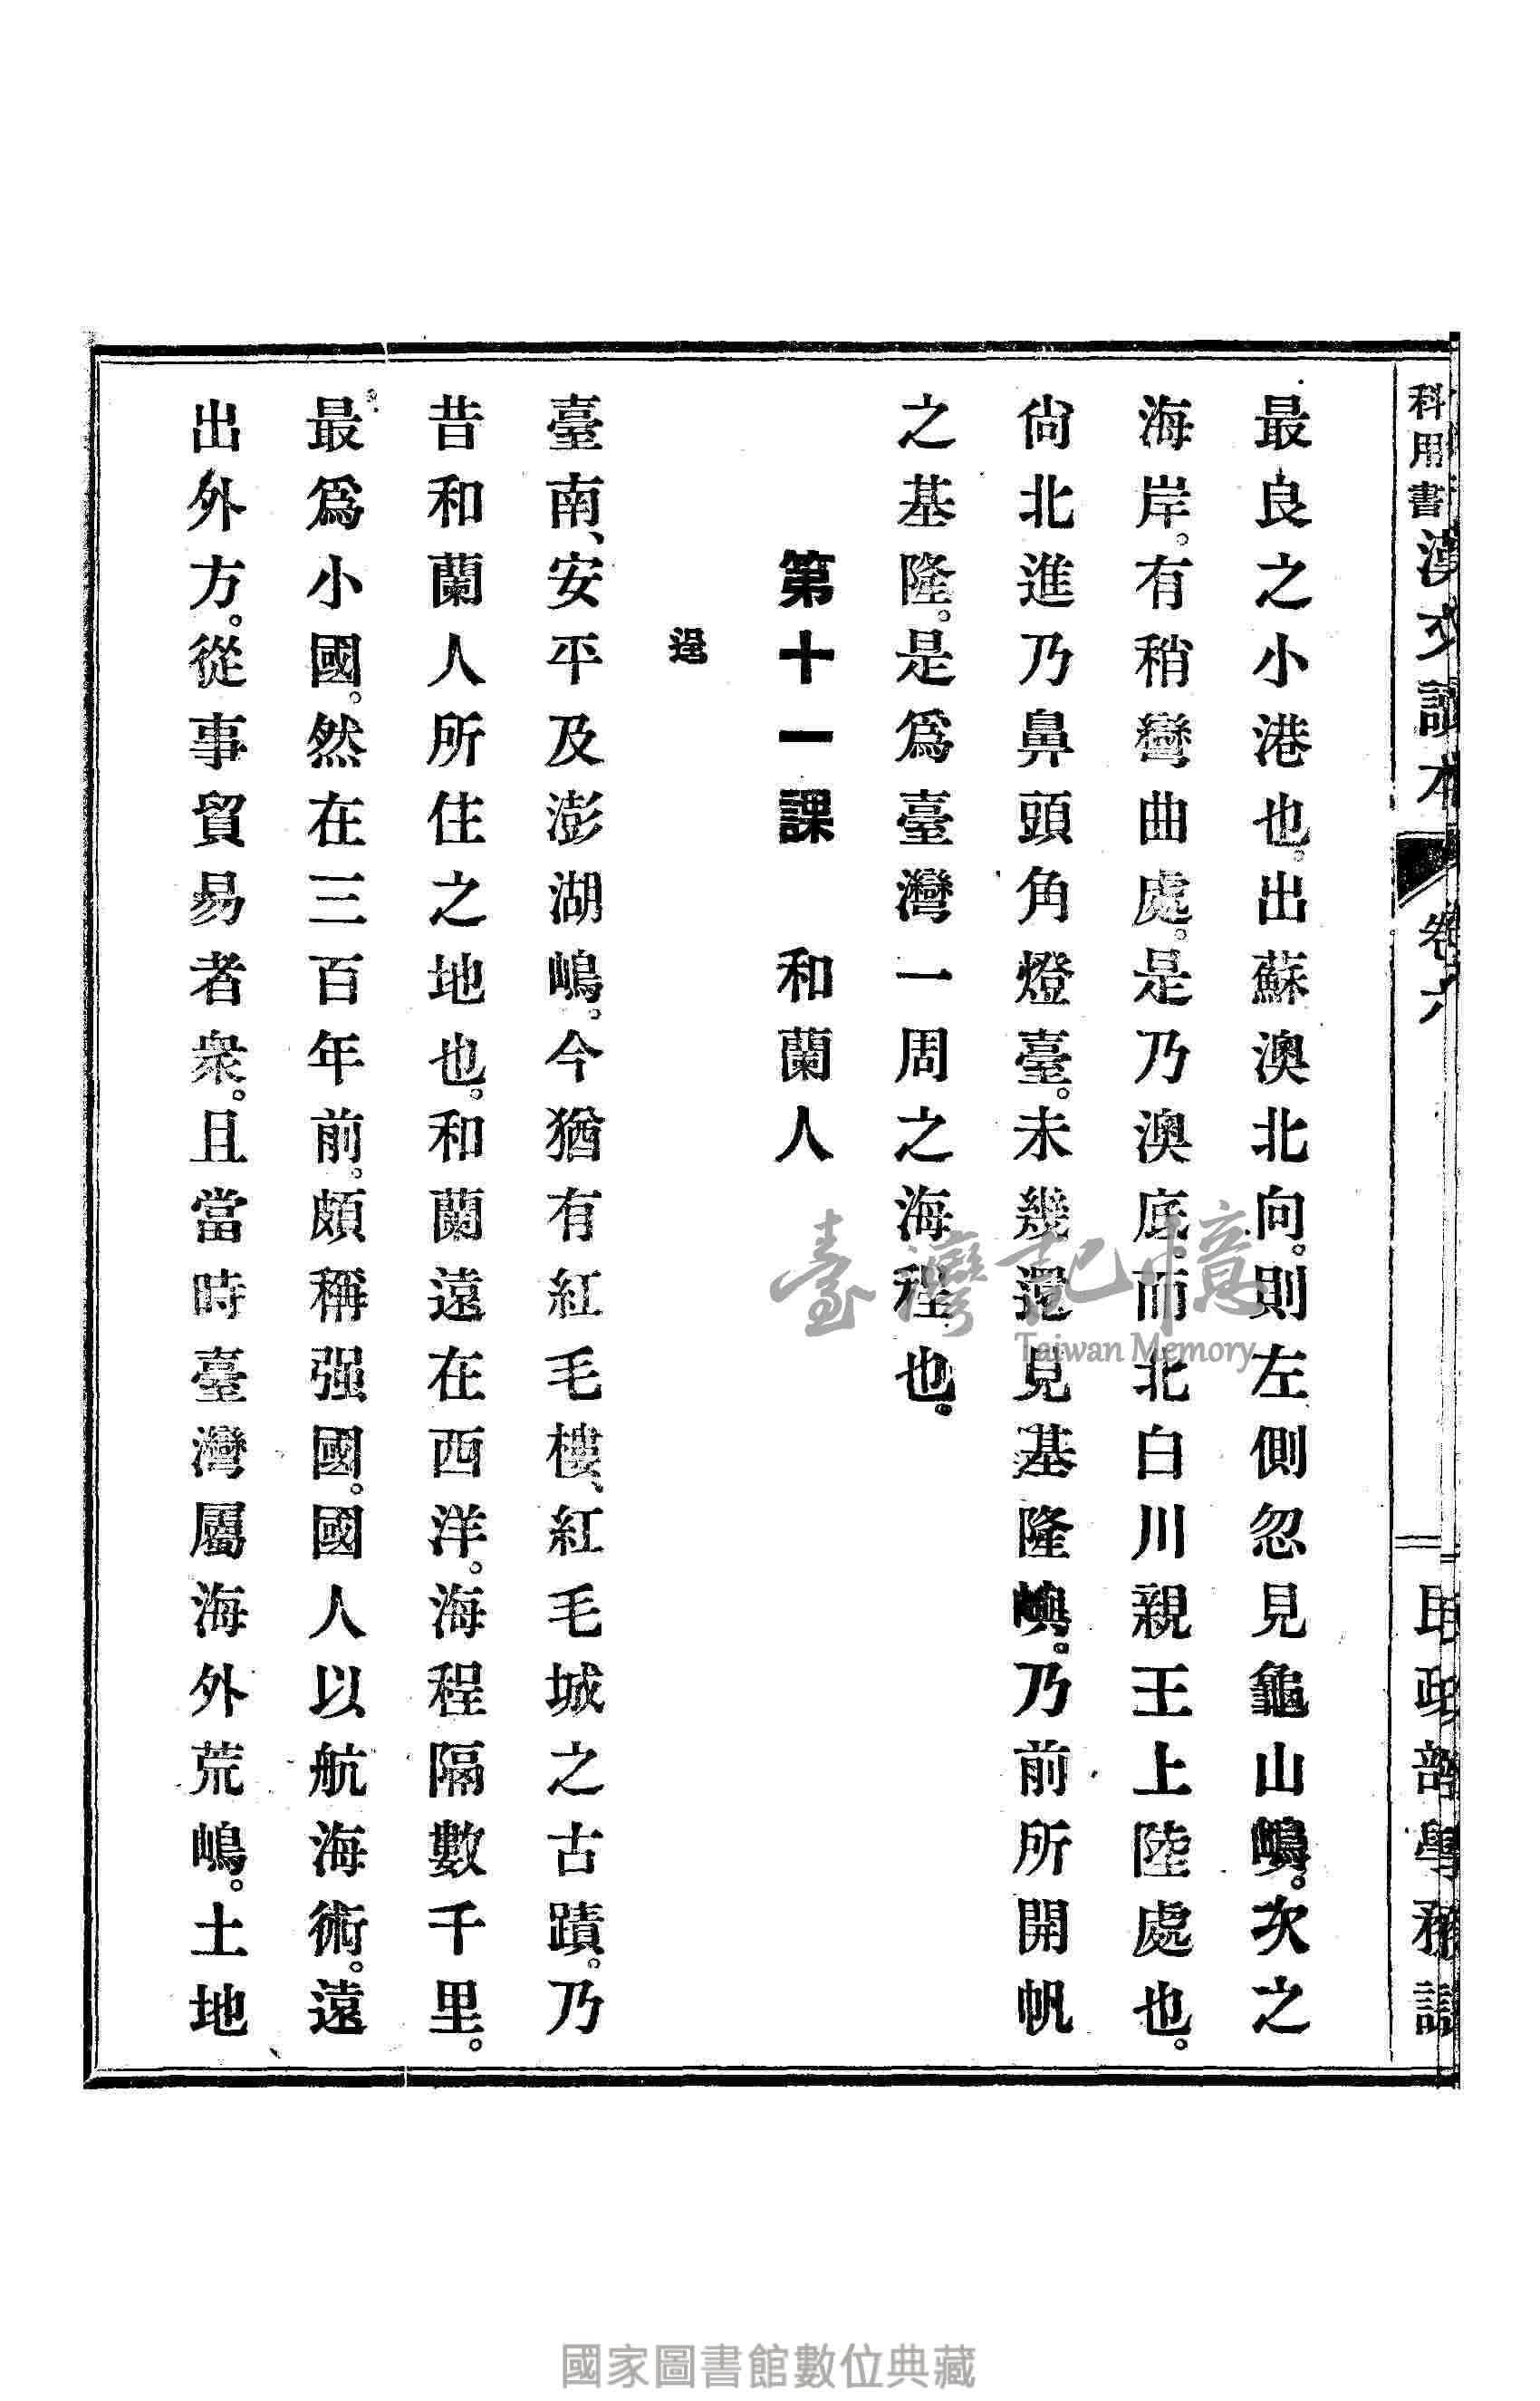 科用書 漢文讀本 卷六 民政部學務課
最良之小港也。出蘇澳北向。則左側忽見龜山嶋。次之
海岸。有稍彎曲處。是乃澳底。而北白川親王上陸處也。
尙北進乃鼻頭角燈臺。未幾還見基隆嶼。乃前所開帆
之基隆。是爲臺灣一周之海程也。
第十一課 和蘭人
臺南、安平及澎湖嶋。今猶有紅毛樓、紅毛城之古蹟。乃
昔和蘭人所住之地也。和蘭遠在西洋。海程隔數千里。
最爲小國。然在三百年前。頗稱强國。國人以航海術。遠
出外方。從事貿易者衆。且當時臺灣屬海外荒嶋。土地
臺灣記憶
Taiwan Memory
國家圖書館數位典藏